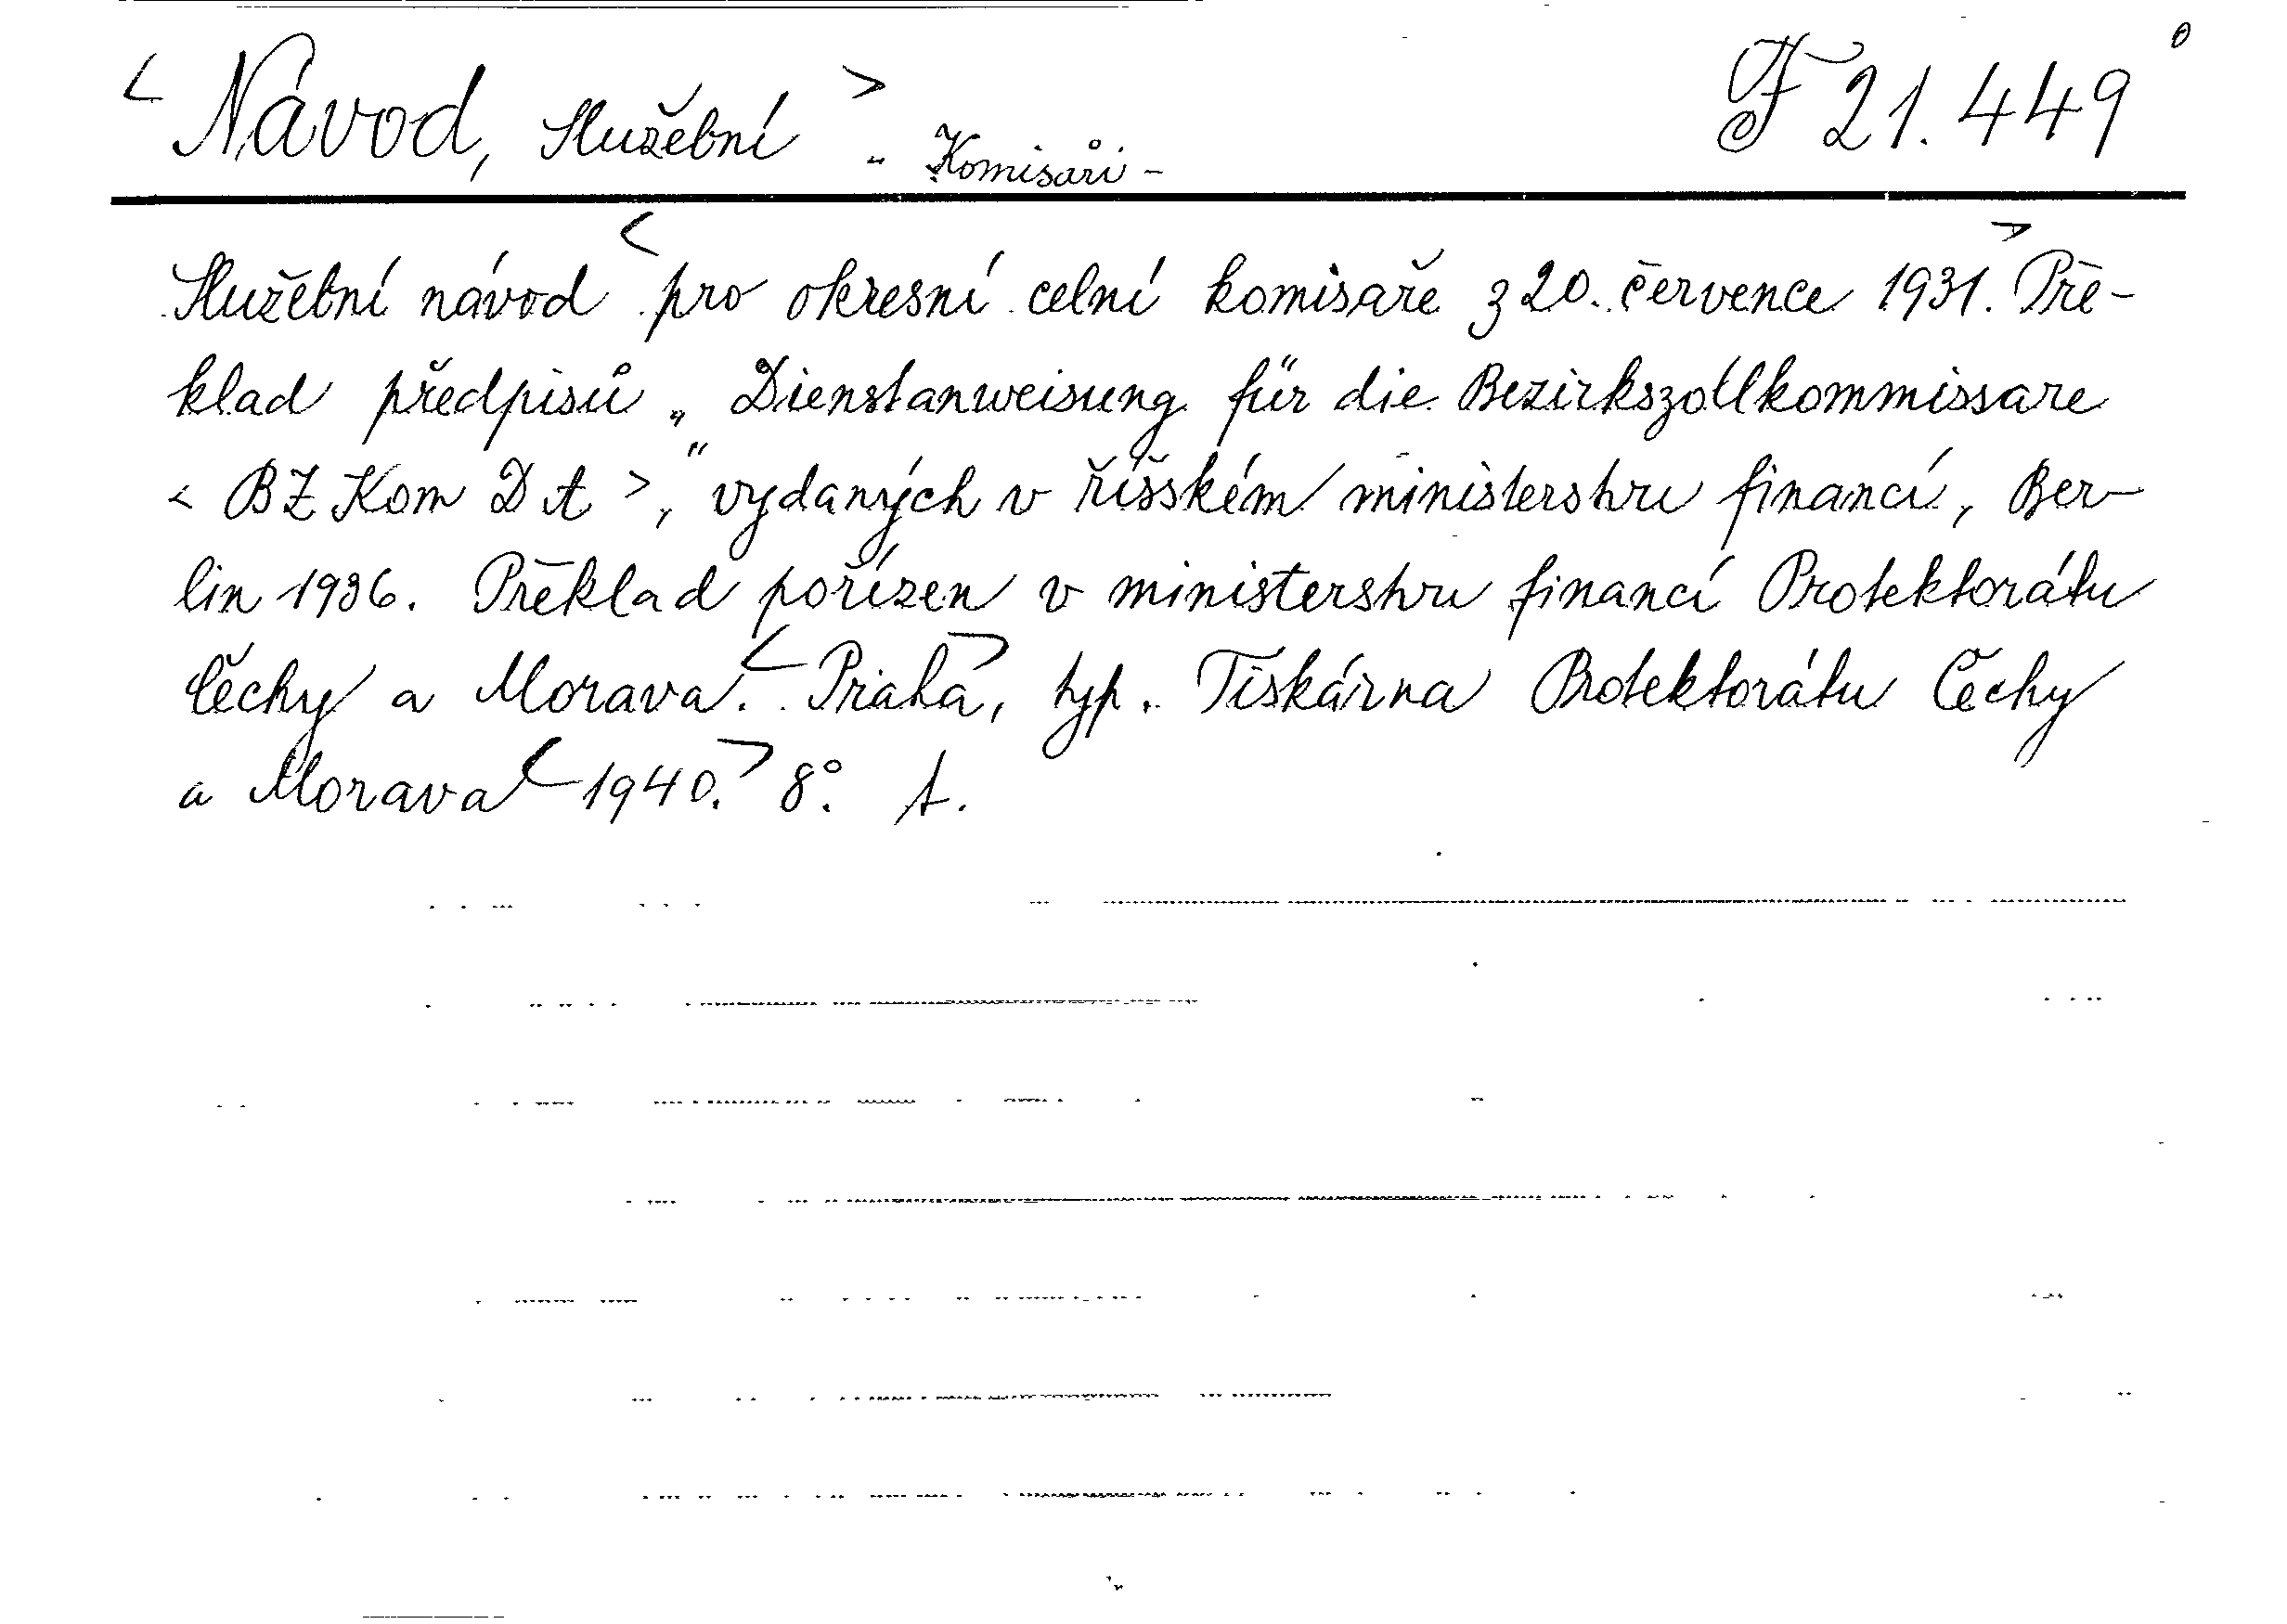 < Návod, služební > - Komisaři - F 21.449
Služební návod < pro okresní celní komisaře z 20. července 1931. > Pře-
klad předpisů „Dienstanweisung für die Bezirkszollkommissare
< BZKom DA >," vydaných v říšském ministerstvu financí, Ber-
lin 1936. Překlad pořízen v ministerstvu financí Protektorátu
Čechy a Morava. < Praha >, typ. Tiskárna Protektorátu Čechy
a Morava < 1940. > 8°. A.